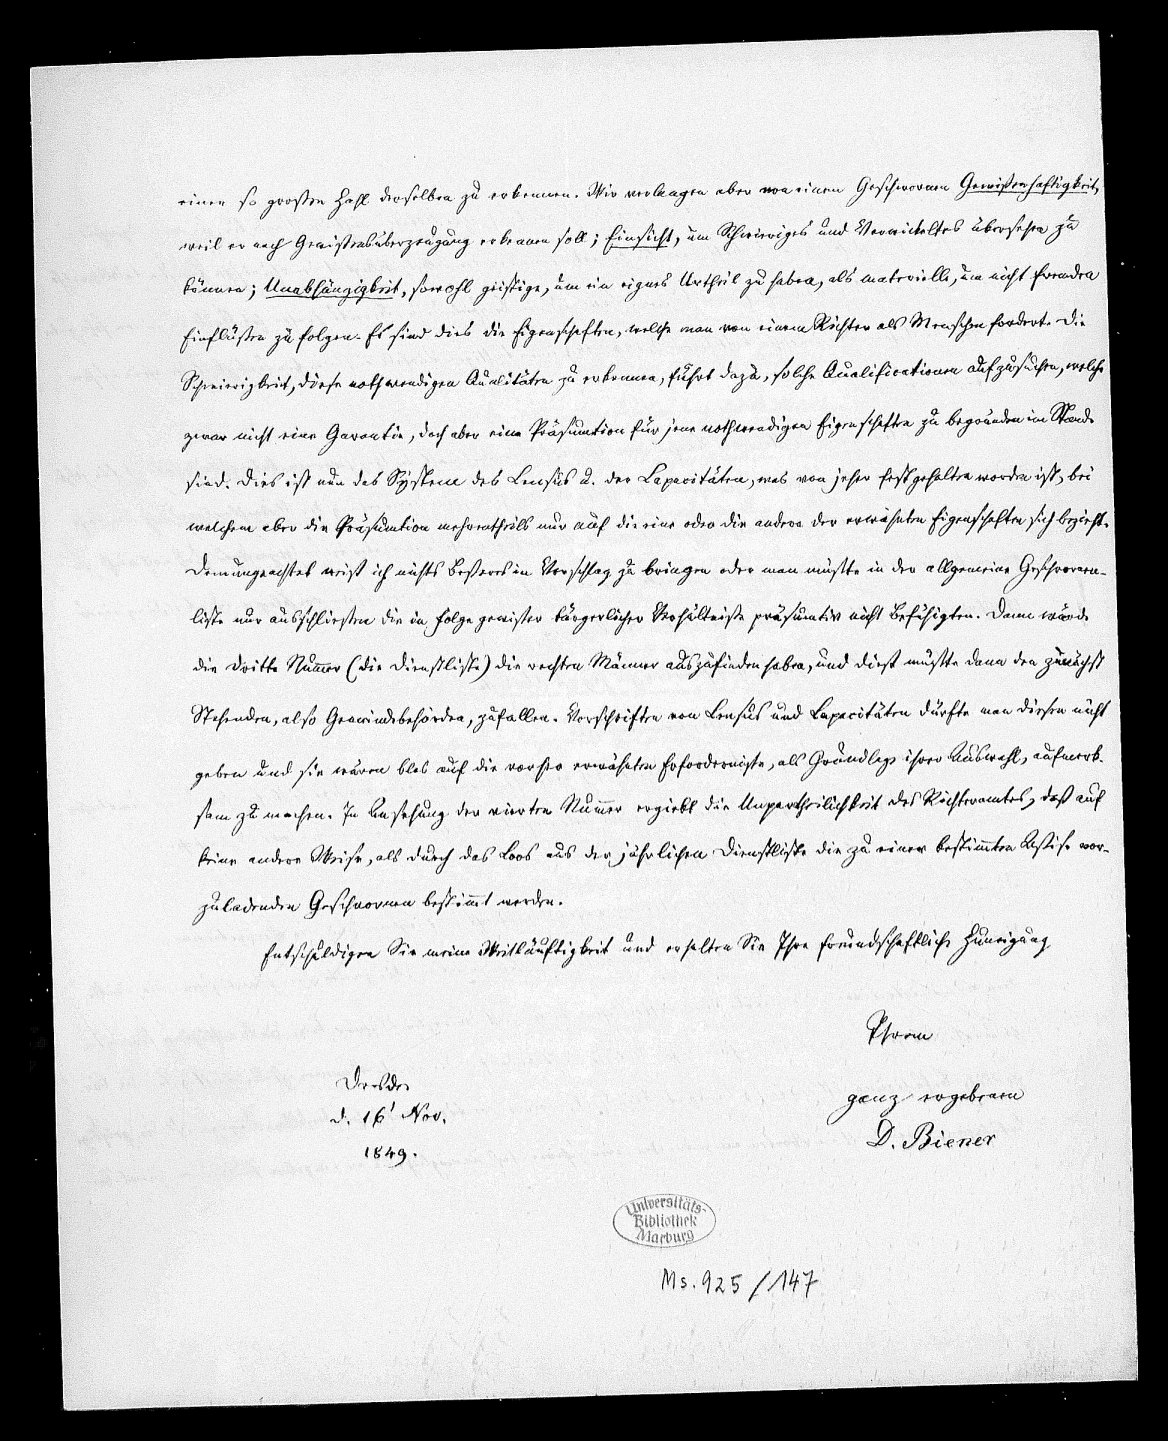 einer so großen Zahl derselben zu erkennen. Wir verlangen aber von einem Geschwornen Gewissenhaftigkeit,
weil er nach Gewissensüberzeugung erkennen soll; Einsicht, um Schwieriges und Verwickeltes übersehen zu
können; Unabhängigkeit, sowohl geistige, um ein eignes Urtheil zu haben, als materielle, um nicht fremden
Einflüssen zu folgen. Es sind dies die Eigenschaften, welche man von einem Richter als Menschen fordert. Die
Schwierigkeit, diese nothwendigen Qualitäten zu erkennen, führt dazu, solche Qualificationen aufzusuchen, welche
zwar nicht eine Garantie, doch aber eine Präsumtion für jene nothwendigen Eigenschaften zu begründen im Stande
sind. Dies ist nun das System des Census u. der Capacitäten, was von jeher festgehalten worden ist, bei
welchem aber die Präsumtion mehrentheils nur auf die eine oder die andere der erwähnten Eigenschaften sich bezieht.
Demungeachtet weiß ich nichts Besseres in Vorschlag zu bringen oder man müßte in der allgemeinen Geschwornen-
liste nur ausschließen die in Folge gewisser bürgerlicher Verhältnisse präsumtiv nicht Befähigten. Dann würde
die dritte Nummer (die Dienstliste) die rechten Männer auszufinden haben, und dieß müßte dann den zunächst
Stehenden, also Gemeindebehörden, zufallen. Vorschriften von Census und Capacitäten dürfte man diesen nicht
geben und sie wären blos auf die vorher erwähnten Erfordernisse, als Grundlage ihrer Auswahl, aufmerk-
sam zu machen. In Ansehung der vierten Nummer ergiebt die Unpartheilichkeit des Richteramtes, daß auf
keine andere Weise, als durch das Loos aus der jährlichen Dienstliste die zu einer bestimmten Assise vor-
zuladenden Geschwornen bestimmt werden.
Entschuldigen Sie meine Weitläuftigkeit und erhalten Sie Ihre freundschaftliche Zuneigung
Ihrem
ganz ergebenen
D. Biener
Dresden
d. 16 Nov.
1849.
Universitäts-
Bibliothek
Marburg
Ms. 925/147